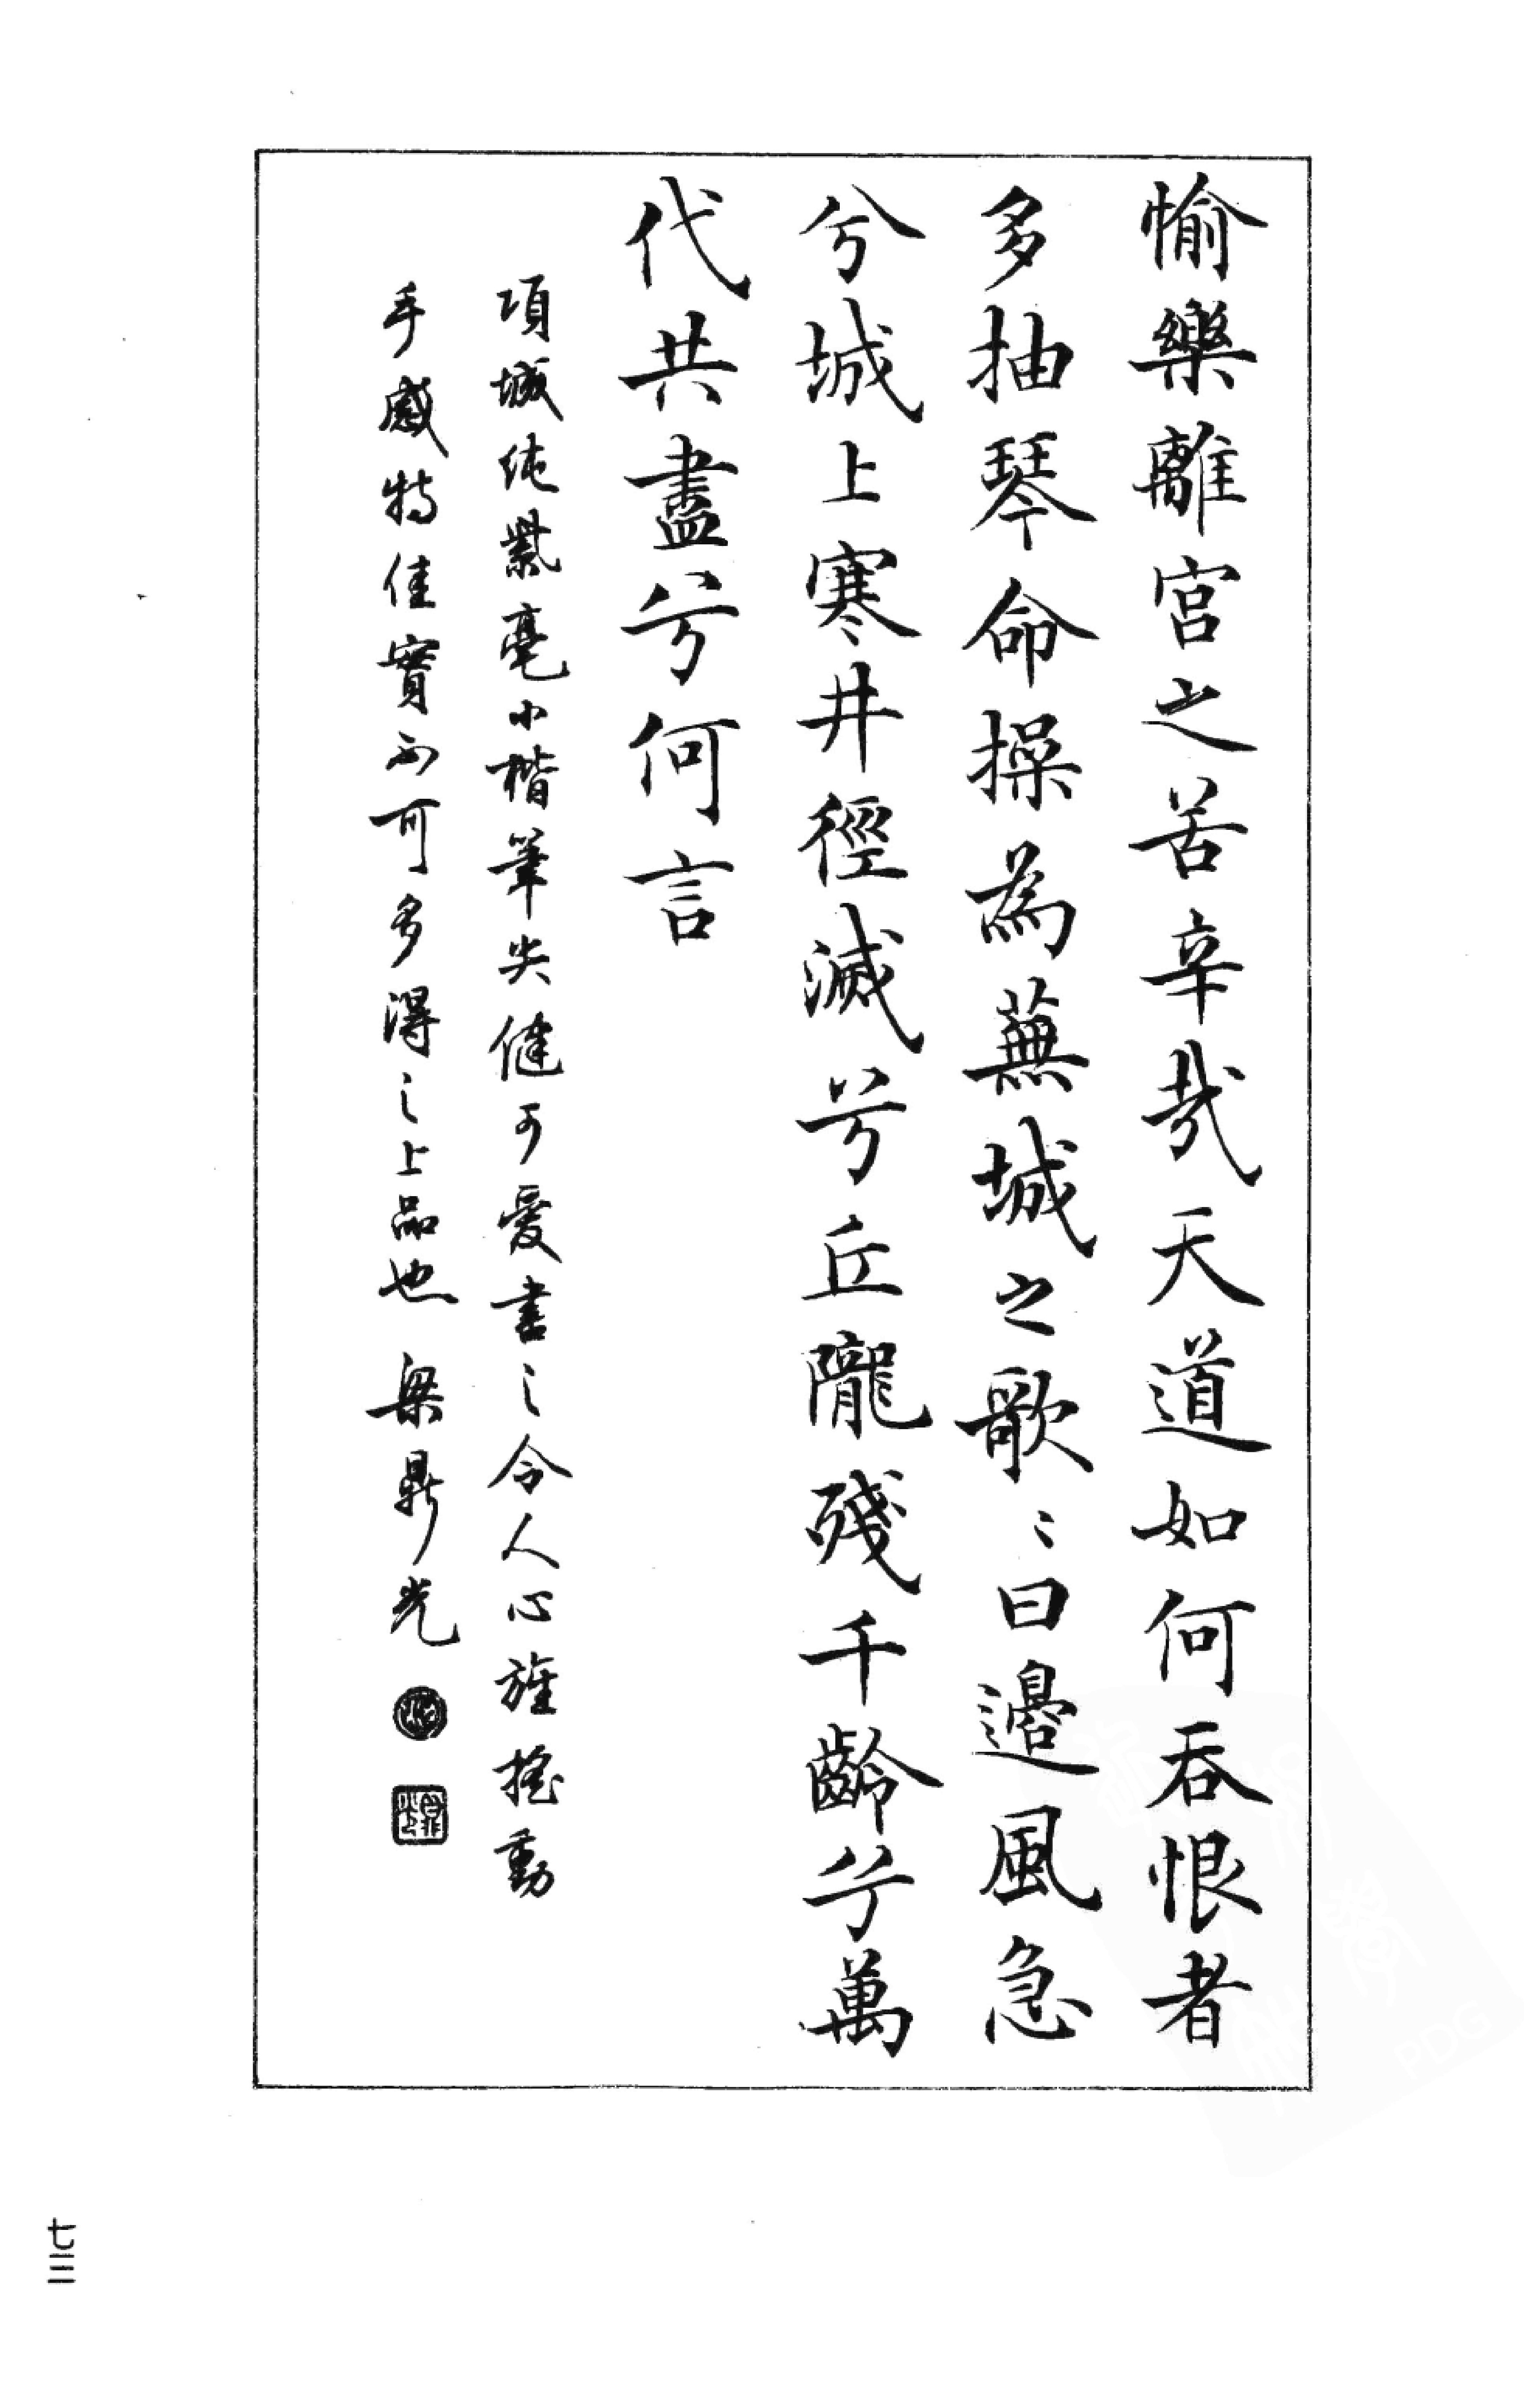 愉樂離宮之苦辛哉天道如何吞恨者
多抽琴命操為蕪城之歌〻曰邊風急
兮城上寒井徑滅兮丘隴殘千齡兮萬
代共盡兮何言
項城純紫毫小楷筆尖健可愛書之令人心旌搖動
手感特佳實不可多得之上品也 梁鼎光
七三
PDG